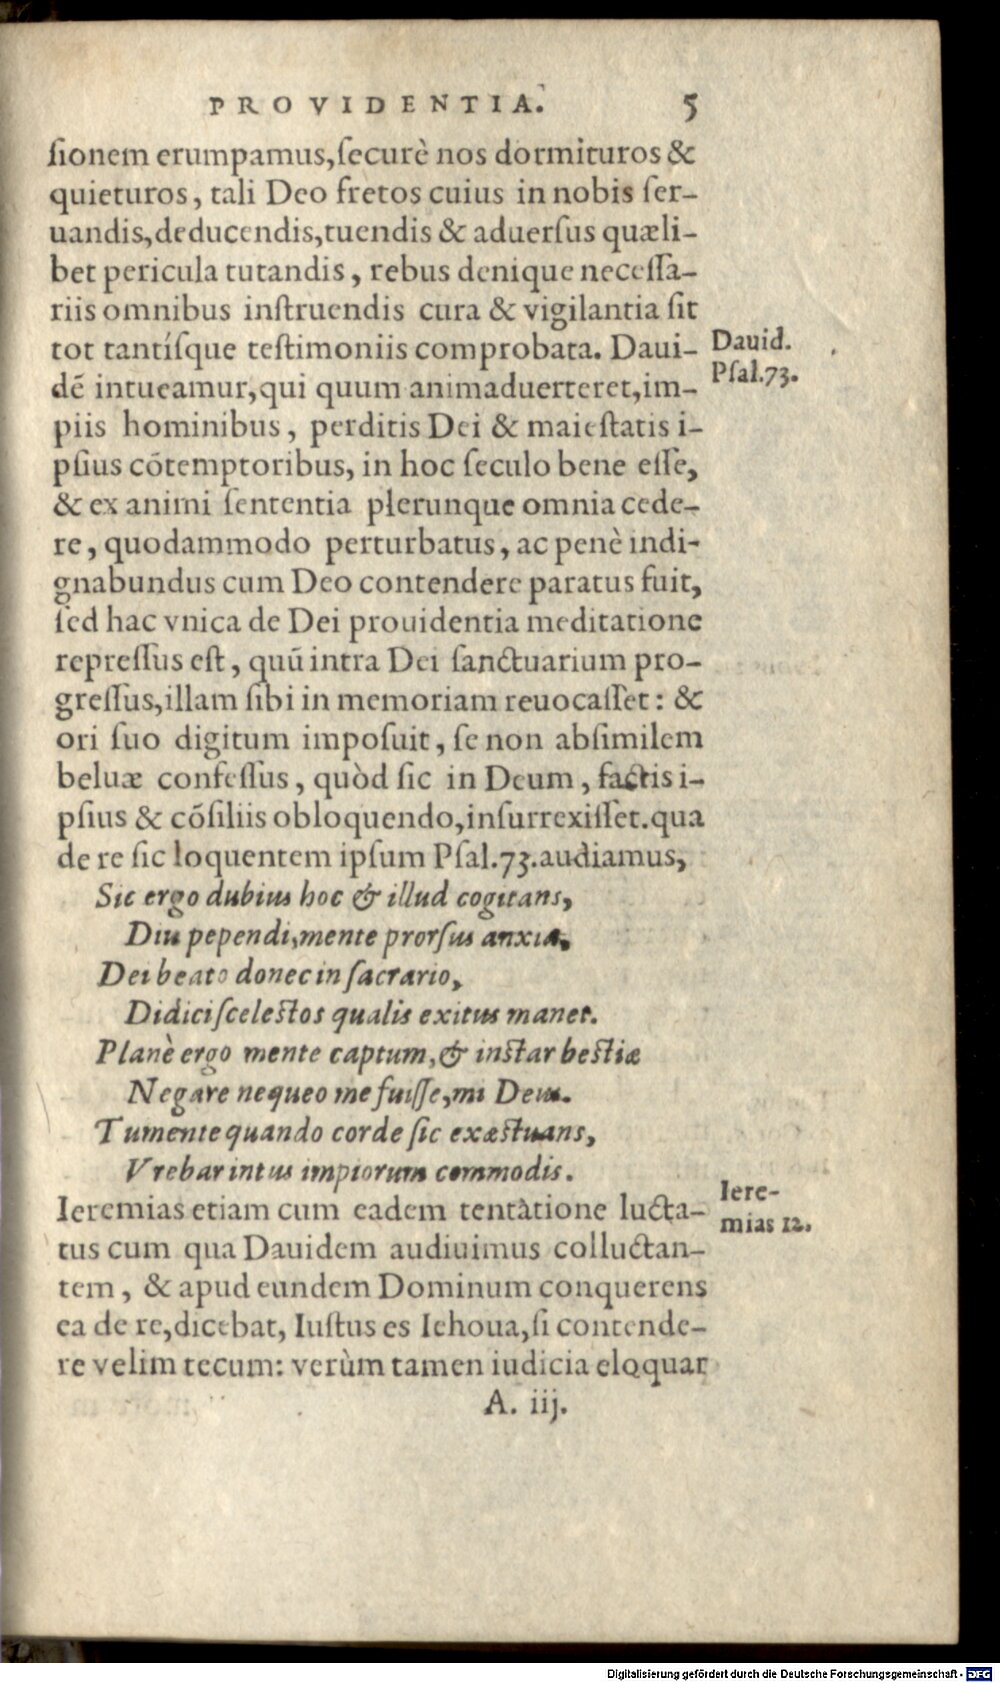 PROVIDENTIA. 5
ſionem erumpamus, ſecurè nos dormituros &
quieturos, tali Deo fretos cuius in nobis ſer-
uandis, deducendis, tuendis & aduerſus quæli-
bet pericula tutandis, rebus denique neceſſa-
riis omnibus inſtruendis cura & vigilantia ſit
tot tantíſque teſtimoniis comprobata. Daui-
Dauid.
dē intueamur, qui quum animaduerteret, im-
Pſal.73.
piis hominibus, perditis Dei & maieſtatis i-
pſius cōtemptoribus, in hoc ſeculo bene eſſe,
& ex animi ſententia plerunque omnia cede-
re, quodammodo perturbatus, ac penè indi-
gnabundus cum Deo contendere paratus fuit,
ſed hac vnica de Dei prouidentia meditatione
repreſſus eſt, quū intra Dei ſanctuarium pro-
greſſus, illam ſibi in memoriam reuocaſſet: &
ori ſuo digitum impoſuit, ſe non abſimilem
beluæ confeſſus, quòd ſic in Deum, factis i-
pſius & cōſiliis obloquendo, inſurrexiſſet. qua
de re ſic loquentem ipſum Pſal.73. audiamus,
Sic ergo dubius hoc & illud cogitans,
Diu pependi, mente prorſus anxia,
Dei beato donec in ſacrario,
Didici ſceleſtos qualis exitus manet.
Planè ergo mente captum, & inſtar beſtiæ
Negare nequeo me fuiſſe, mi Deus.
Tumente quando corde ſic exæſtuans,
Vrebar intus impiorum commodis.
Ieremias etiam cum eadem tentàtione lucta-
Iere-
mias 12.
tus cum qua Dauidem audiuimus colluctan-
tem, & apud eundem Dominum conquerens
ea de re, dicebat, Iuſtus es Iehoua, ſi contende-
re velim tecum: verùm tamen iudicia eloquar
A. iij.
Digitalisierung gefördert durch die Deutsche Forschungsgemeinschaft - DFG